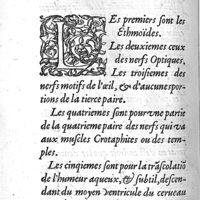 LEs premiers sont les
Ethmoïdes.
Les deuxiemes ceux
des nerfs Optiques,
Les troisiemes des
nerfs motifs de l'œil, & d'aucunes por-
tions de la tierce paire.
Les quatriemes sont pour vne partie
de la quatrieme paire des nerfs qui va
aux muscles Crotaphites ou des tem-
ples.
Les cinqiemes sont pour la trāscolatiō
de l'humeur aqueux, & subtil, descen-
dant du moyen ventricule du cerueau